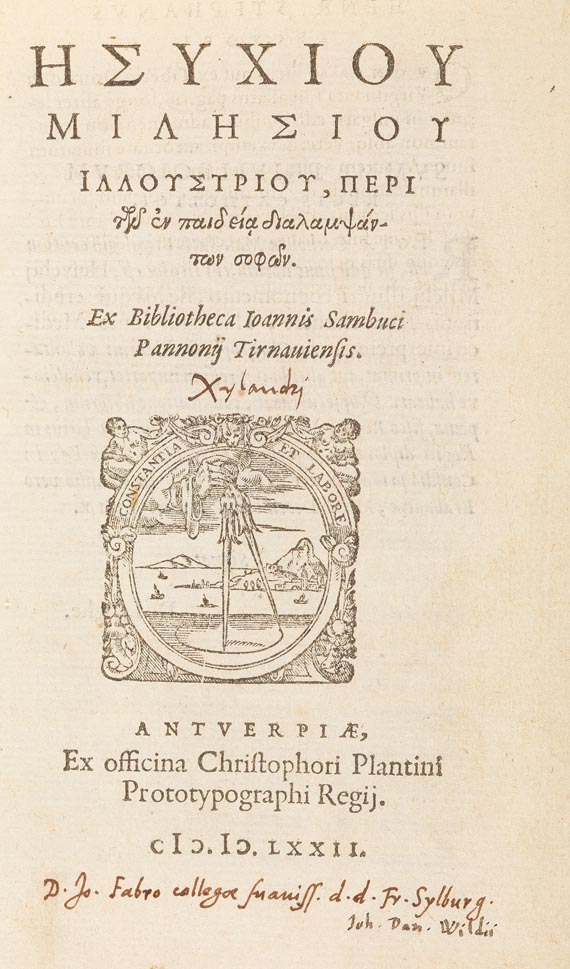 ΗΣΥΧΙΟΥ
ΜΙΛΗΣΙΟΥ
ΙΛΛΟΥΣΤΡΙΟΥ, ΠΕΡΙ
τῶν ἐν παιδείᾳ διαλαμψάν-
των σοφῶν.
Ex Bibliotheca Ioannis Sambuci
Pannonij Tirnauiensis.
Xylandri
CONSTANTIA ET LABORE
ANTVERPIÆ,
Ex officina Christophori Plantini
Prototypographi Regij.
cIɔ.Iɔ.LXXII.
D. Jo. Fabro collegae suaviss. d. d. Fr. Sylburg.
Joh. Dan. Wildii